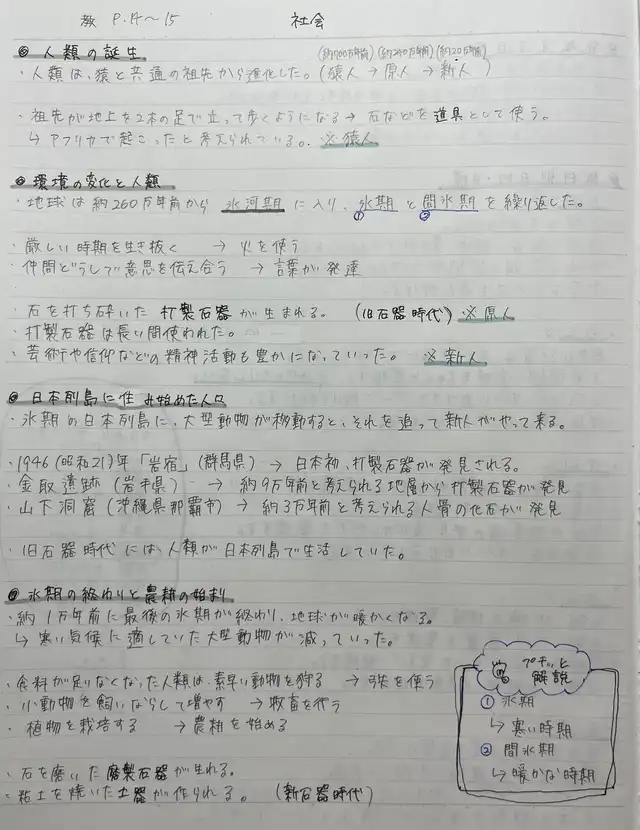 教 P.14~15 社会
◎ 人類の誕生
(約700万年前) (約240万年前) (約20万年前)
・人類は、猿と共通の祖先から進化した。(猿人 → 原人 → 新人)
・祖先が地上を2本の足で立って歩くようになる → 石などを道具として使う。
↳ アフリカで起こったと考えられている。 ※猿人
◎ 環境の変化と人類
・地球は約260万年前から 氷河期 に入り、氷期 と 間氷期 を繰り返した。
① ②
・厳しい時期を生き抜く → 火を使う
・仲間どうしで意思を伝え合う → 言葉が発達
・石を打ち砕いた 打製石器 が生まれる。 (旧石器時代) ※原人
・打製石器は長い間使われた。
・芸術や信仰などの精神活動も豊かになっていった。 ※新人
◎ 日本列島に住み始めた人々
・氷期の日本列島に、大型動物が移動すると、それを追って新人がやって来る。
・1946(昭和21)年「岩宿」(群馬県) → 日本初、打製石器が発見される。
・金取遺跡 (岩手県) → 約9万年前と考えられる地層から打製石器が発見
・山下洞窟 (沖縄県那覇市) → 約3万年前と考えられる人骨の化石が発見
・旧石器時代には、人類が日本列島で生活していた。
◎ 氷期の終わりと農耕の始まり
・約1万年前に最後の氷期が終わり、地球が暖かくなる。
↳ 寒い気候に適していた大型動物が減っていった。
・食料が足りなくなった人類は、素早い動物を狩る → 弓矢を使う
・小動物を飼いならして増やす → 牧畜を行う
・植物を栽培する → 農耕を始める
・石を磨いた磨製石器が生れる。
・粘土を焼いた土器が作られる。 (新石器時代)
プチッと
解説
① 氷期
↳ 寒い時期
② 間氷期
↳ 暖かな時期